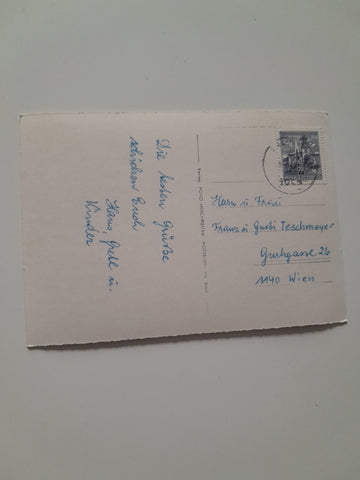 Die besten Grüße
schicken Euch
Hans, Gretl u.
Kinder
FOTO HOCHREITER
Herrn u. Frau
Franz u. Gusti Teschmayer
Gurkgasse 26
1140 Wien